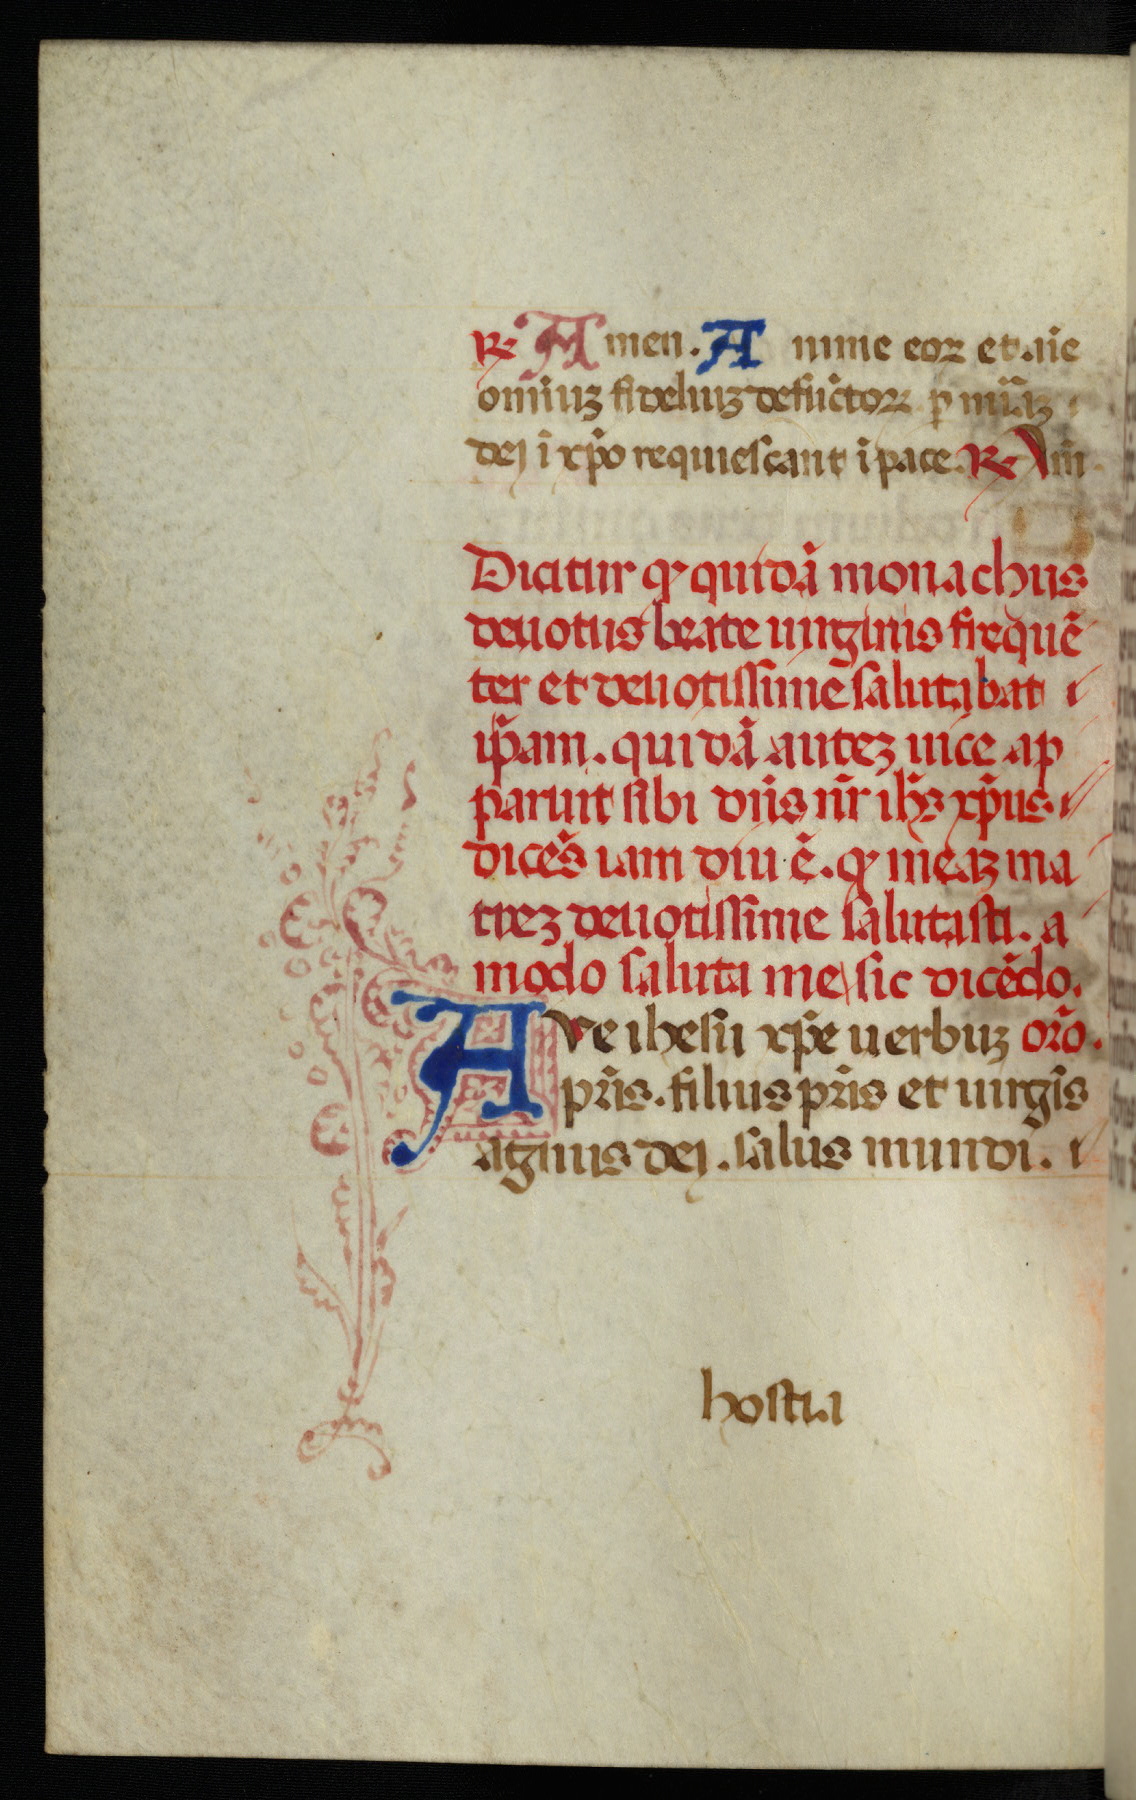 ℟ Amen. A nime eoꝝ et aīe
omīuꝫ fideliuꝫ defūctoꝝ p mīaꝫ
dej ī xp̄o requiescant ī pace. ℟ Am̄
Dicitur ꝙ quidā monachus
deuotus beate uirginis frequē
ter et deuotissime salutabat
ip̄am. quidā auteꝫ uice ap
paruit sibi dn̄s nr̄ ihs̄ xp̄us
dicēs iam diu ē. ꝙ meaꝫ ma
treꝫ deuotissime salutasti. a
modo saluta me sic dicēdo.
Ave ihesu xp̄e uerbuꝫ or̄o.
pr̄is. filius pr̄is et uirgīs
agnus dej. salus mundi.
hostia